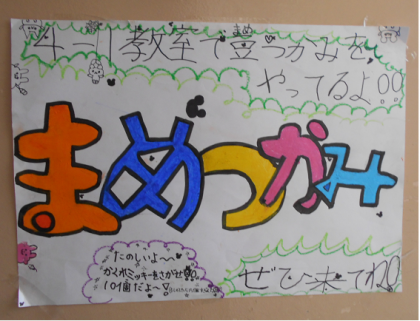 4-1教室で豆つかみを
やってるよ!!
まめつかみ
たのしいよ〜
かくれミッキーをさがせ!!
10個だよ〜
ぜひ来てね!!